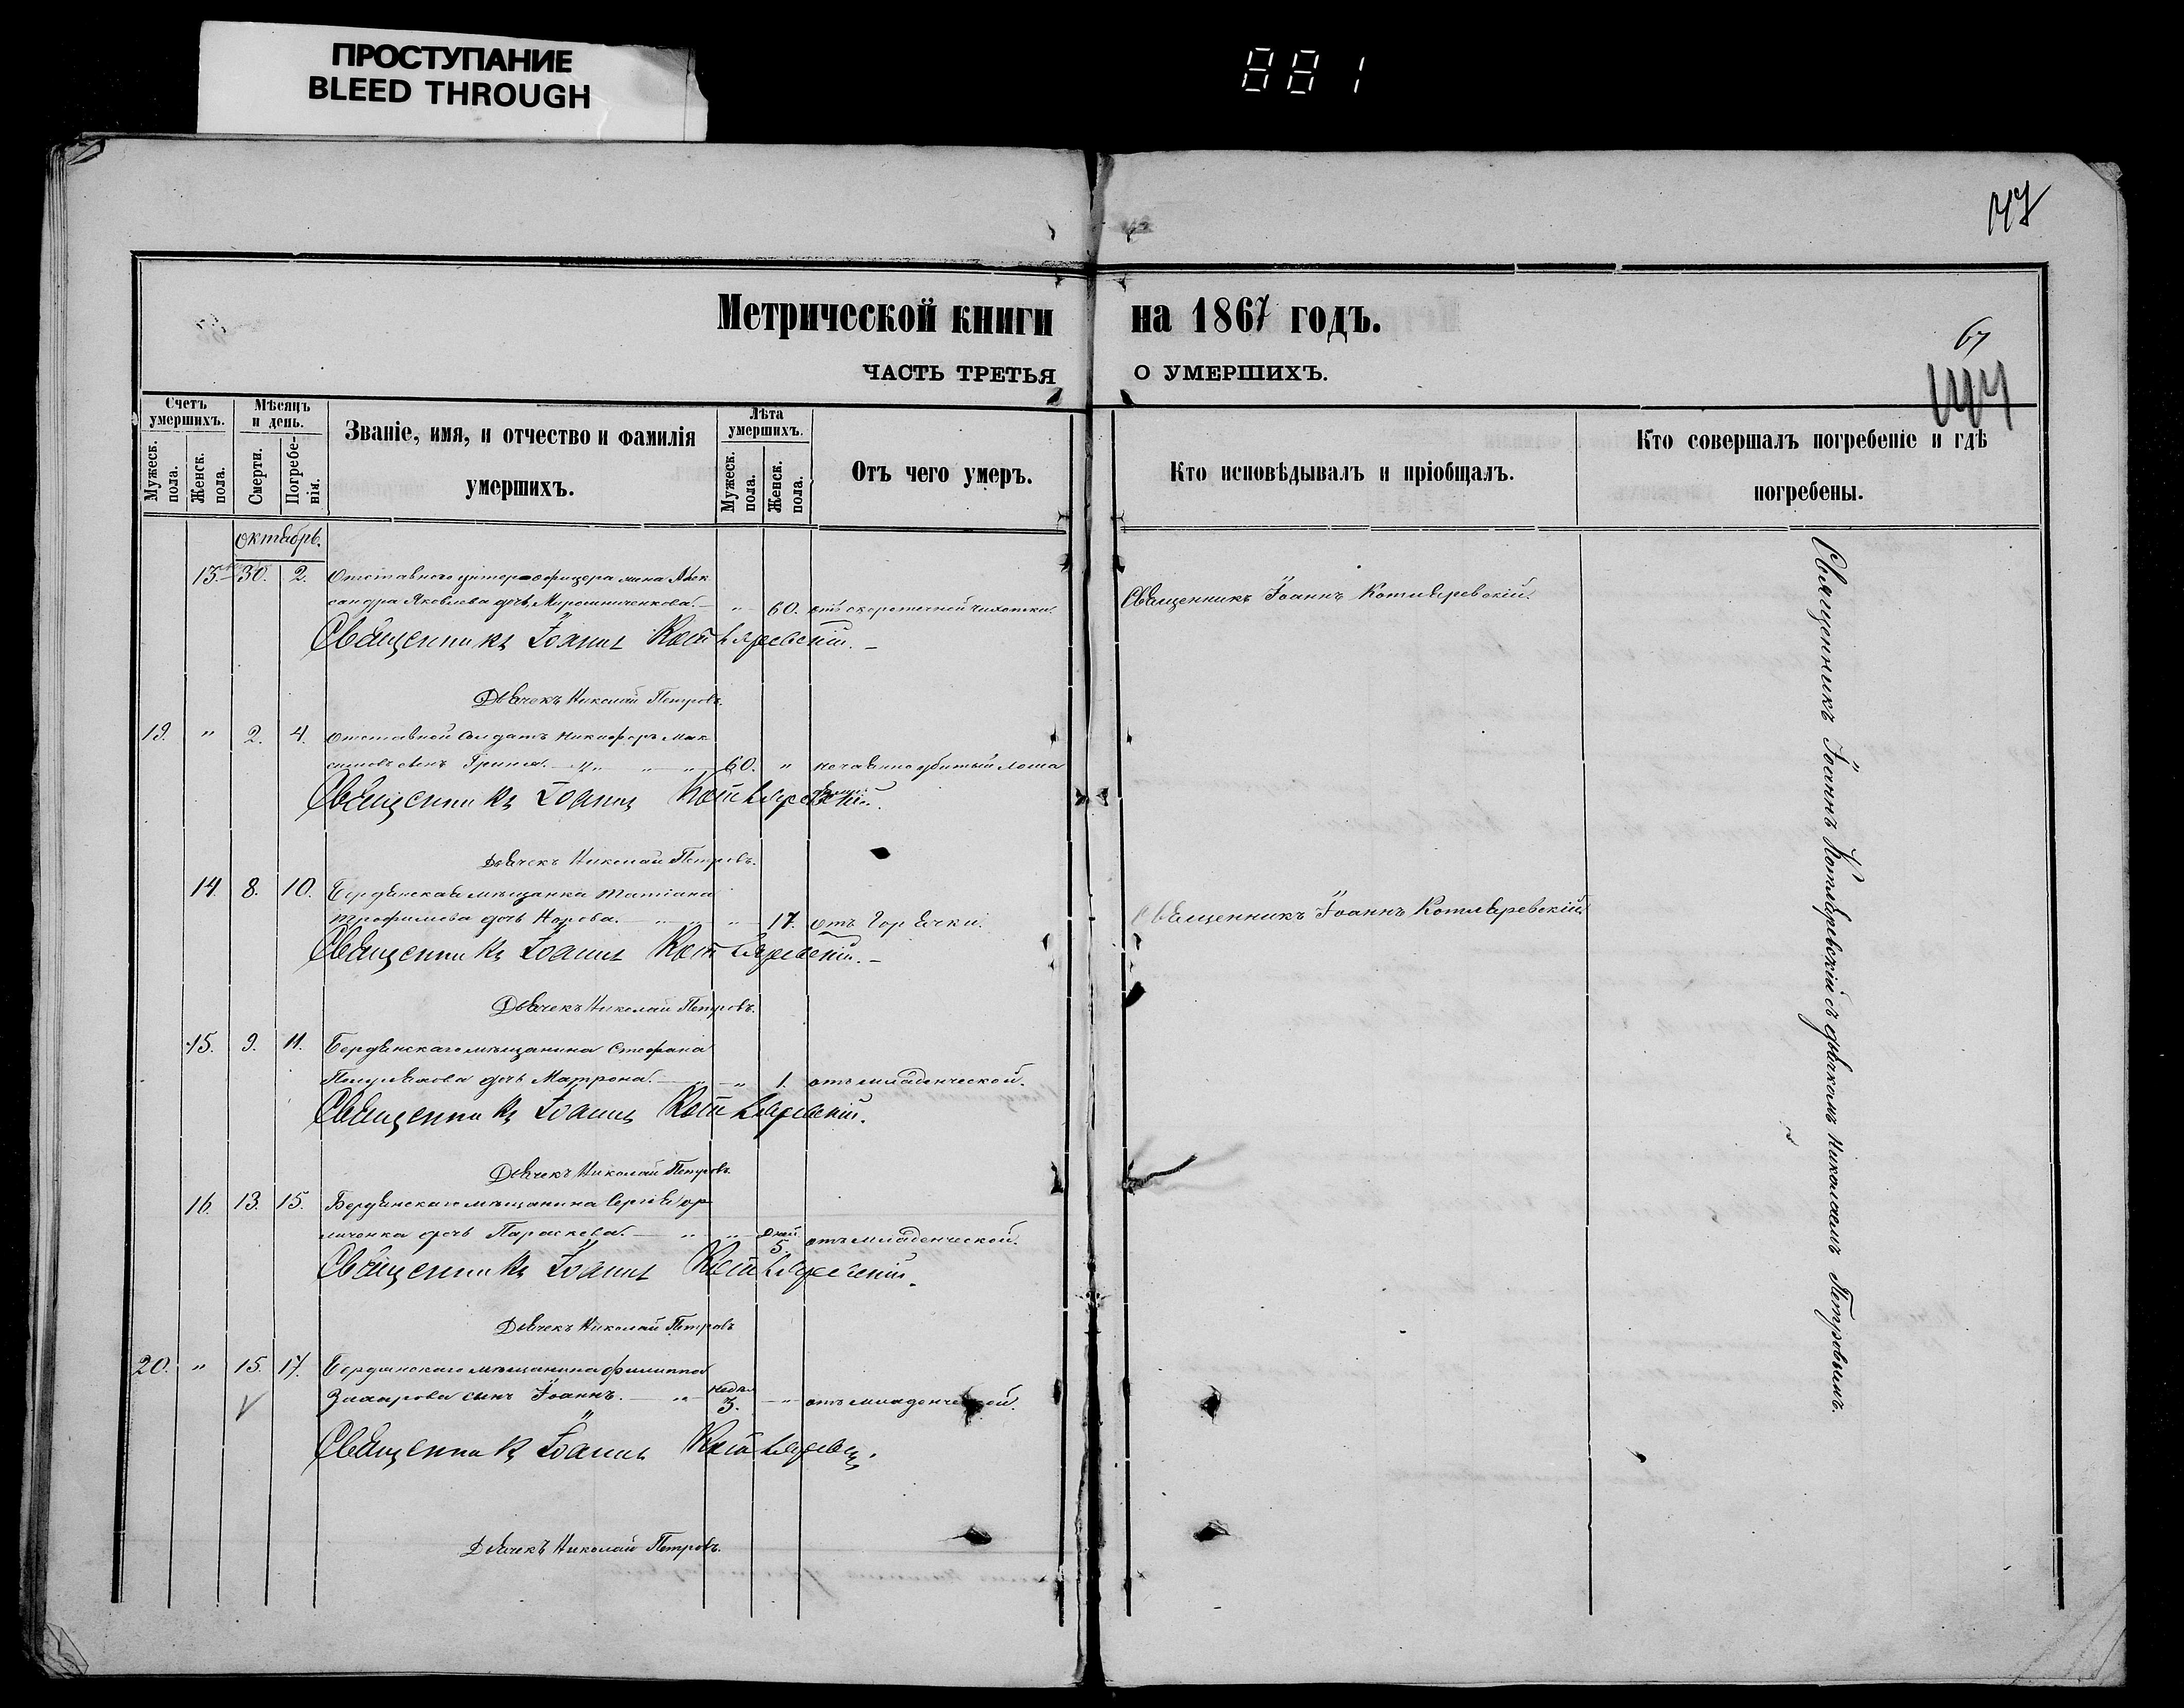 ПРОСТУПАНИЕ
BLEED THROUGH
881
Метрической книги на 1867 годъ.
67
ЧАСТЬ ТРЕТЬЯ О УМЕРШИХЪ.
Счетъ умершихъ.
Мужеск. пола.
Женск. пола.
Мѣсяцъ и день.
Смерти.
Погребенія.
Званіе, имя, и отчество и фамилія умершихъ.
Лѣта умершихъ.
Мужеск. пола.
Женск. пола.
Отъ чего умеръ.
Кто исповѣдывалъ и пріобщалъ.
Кто совершалъ погребеніе и гдѣ погребены.
Октябрь.
13. 30. 2. Отставного унтеръ-офицера жена Алек
сандра Яковлева дочь Мирошниченкова. " 60. отъ скоротечной чихотки. Священникъ Іоаннъ Котляревскій.
Священникъ Іоаннъ Котляревскій.
Дьячекъ Николай Петровъ.
19. " 2. 4. Отставной Солдатъ Никифоръ Мак
симовъ сынъ 60. " нечаянно убитый лоша
Священникъ Іоаннъ Котляревскій.
Дьячекъ Николай Петровъ.
14. 8. 10. Бердянская мѣщанка Татіана
Трофимова дочь 17. отъ Горячки. Священникъ Іоаннъ Котляревскій
Священникъ Іоаннъ Котляревскій.
Дьячекъ Николай Петровъ.
15. 9. 11. Бердянскаго мѣщанина Стефана
дочь Матрона. " 1. отъ младенческой.
Священникъ Іоаннъ Котляревскій.
Дьячекъ Николай Петровъ.
16. 13. 15. Бердянскаго мѣщанина Сергія
дочь Параскева. " " дней 5. отъ младенческой.
Священникъ Іоаннъ Котляревскій.
Дьячекъ Николай Петровъ
20. " 15. 17. Бердянскаго мѣщанина Филиппа
сынъ Іоаннъ. " недѣл 3. " отъ младенческой.
Священникъ Іоаннъ
Дьячекъ Николай Петровъ.
Священникъ Іоаннъ Котляревскій съ дьякомъ Николаемъ Петровымъ.